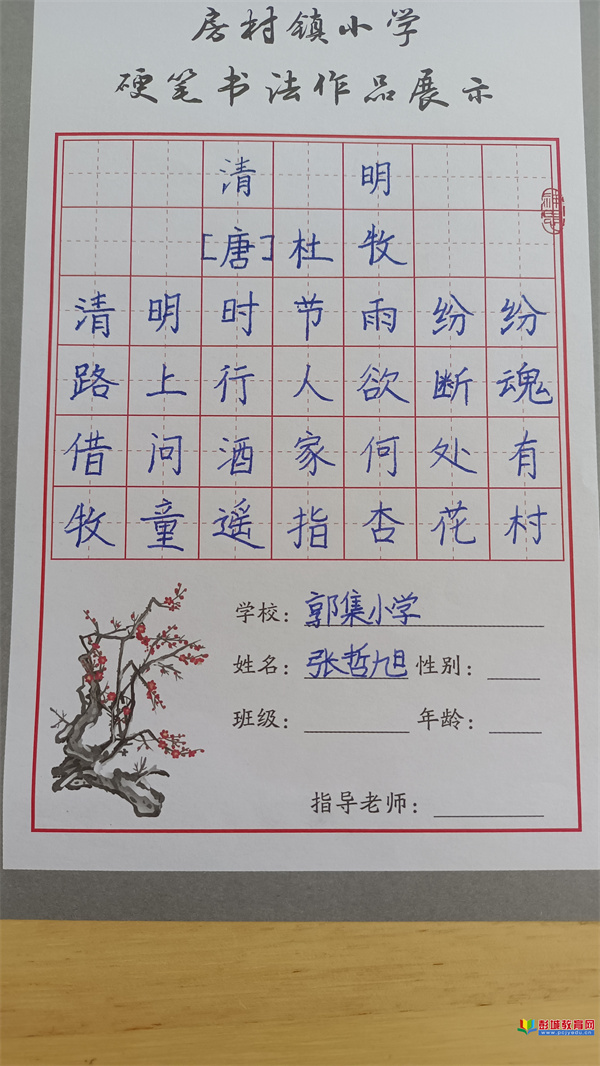 房村镇小学
硬笔书法作品展示
清明
[唐]杜牧
清明时节雨纷纷
路上行人欲断魂
借问酒家何处有
牧童遥指杏花村
学校：郭集小学
姓名：张哲旭 性别：
班级： 年龄：
指导老师：
彭城教育网
www.pcjyedu.cn